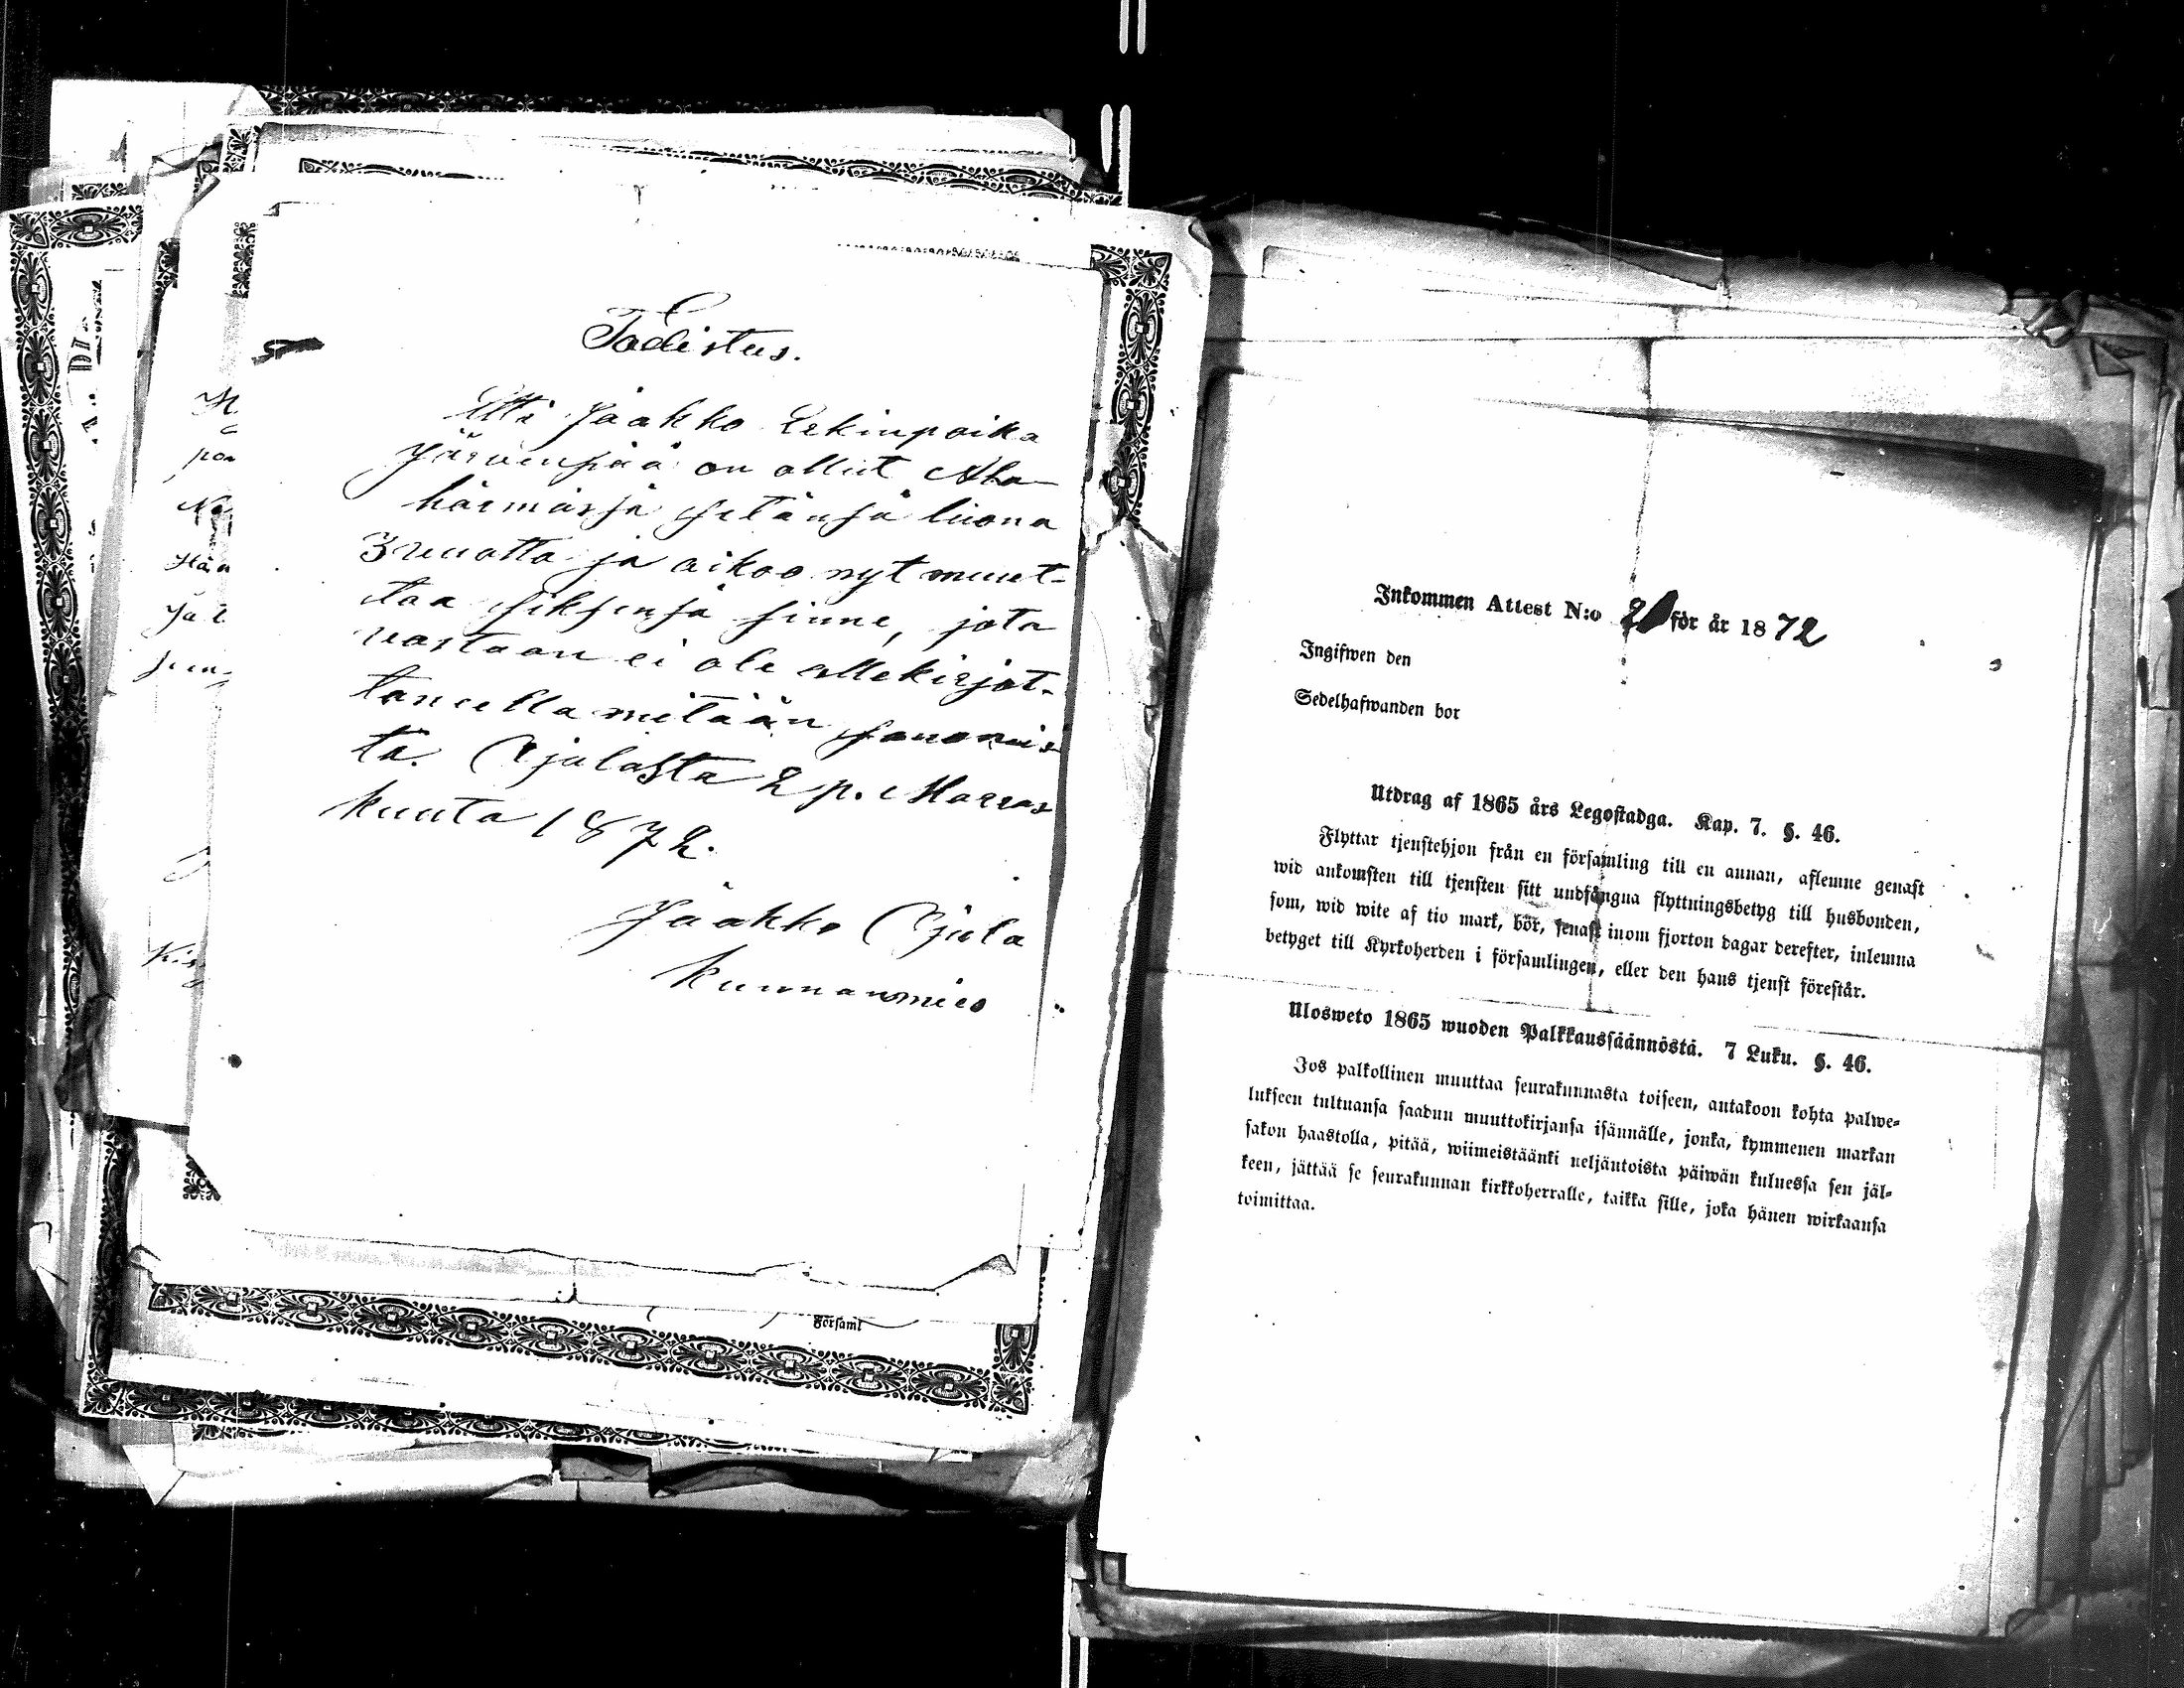 Todistus.
Että Jaakko Eekinpoika
Järwenpää on ollut Ala
härmäsjä setänsä luona
3 wuotta ja aikoo nyt muut-
taa siksensä sinne, jota
vastaan ei ole allekirjot-
taneella mitään sanomis
tä. Ojalasta 2 p. Marras
kuuta 1872.
Jaakko Ojala
kunnanmies
Församl
Inkommen Attest N:o 2 för år 1872
Ingifwen den
Sedelhafwanden bor
Utdrag af 1865 års Legostadga. Kap. 7. §. 46.
Flyttar tjenstehjon från en församling till en annan, aflemne genast
wid ankomsten till tjensten sitt undfångna flyttningsbetyg till husbonden,
som, wid wite af tio mark, bör, senast inom fjorton dagar derefter, inlemna
betyget till Kyrkoherden i församlingen, eller den hans tjenst förestår.
Ulosweto 1865 wuoden Palkkaussäännöstä. 7 Luku. §. 46.
Jos palkollinen muuttaa seurakunnasta toiseen, antakoon kohta palwe=
lukseen tultuansa saadun muuttokirjansa isännälle, jonka, kymmenen markan
sakon haastolla, pitää, wiimeistäänki neljäntoista päiwän kuluessa sen jäl=
keen, jättää se seurakunnan kirkkoherralle, taikka sille, joka hänen wirkaansa
toimittaa.